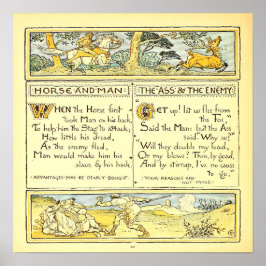 HORSE AND MAN:
WHEN the Horse first
took Man on his back,
To help him the Stag to attack;
How little his dread,
As the enemy fled,
Man would make him his
slave & his hack.
ADVANTAGES MAY BE DEARLY BOUGHT
THE ASS & THE ENEMY
GET up! let us flee from
the Foe,"
Said the Man: but the Ass
said, "Why so?"
"Will they double my load,
Or my blows? Then, by goad,
And by stirrup, I've no cause
to Go,"
YOUR REASONS ARE
NOT MINE!